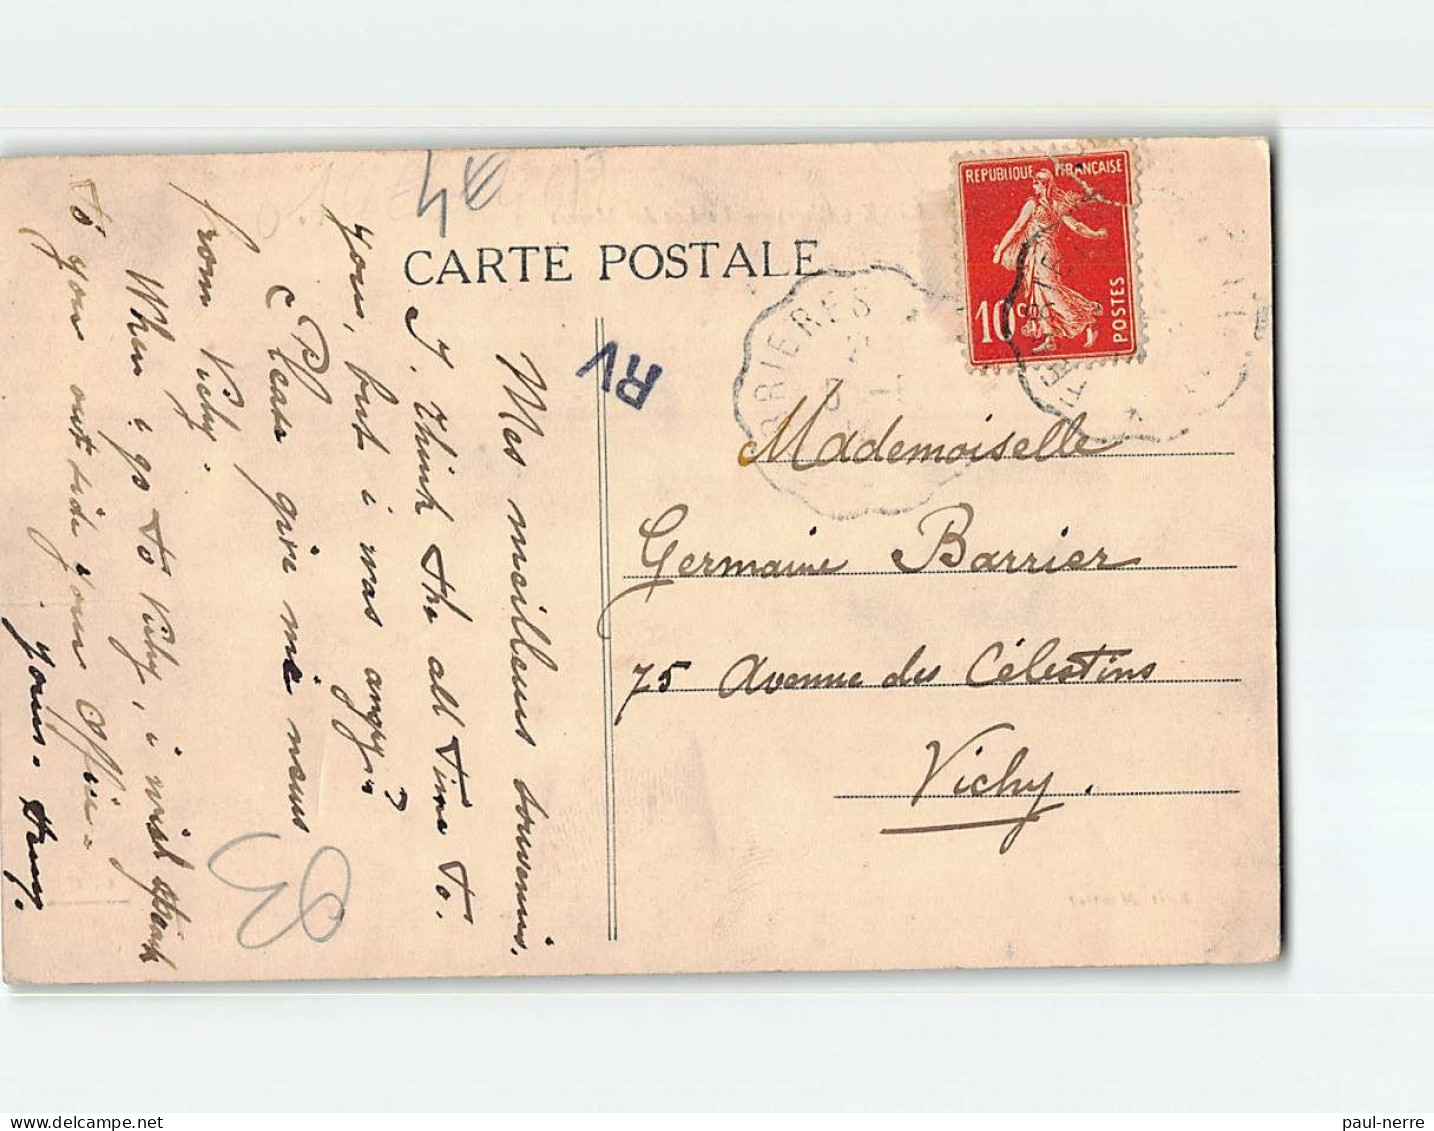 CARTE POSTALE
REPUBLIQUE FRANÇAISE
10c
POSTES
RV
94
93
Mes meilleurs souvenirs,
I. think the all time to.
your, but i was angry?
Please give me news
from Vichy.
When i go to Vichy, i wish speak
to you out side your office.
yours.
Mademoiselle
Germaine Barrier
75 Avenue des Célestins
Vichy.
paul-nerre